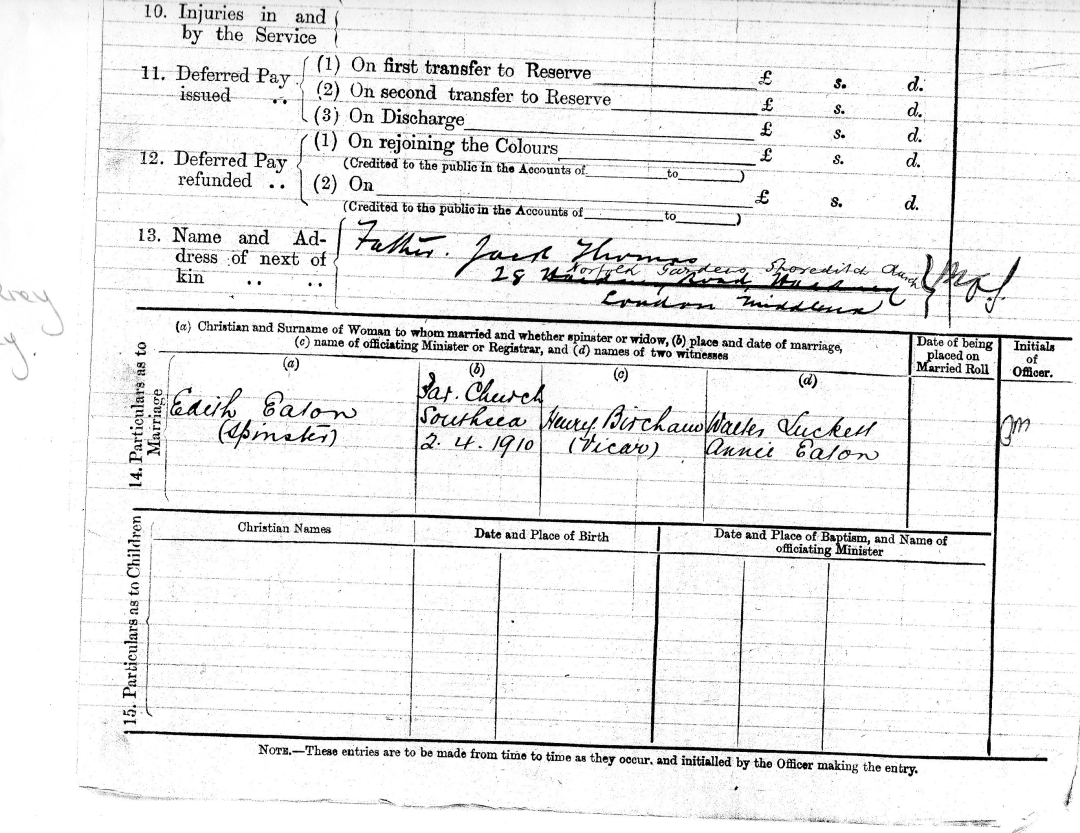 10. Injuries in and
by the Service
11. Deferred Pay
issued ..
(1) On first transfer to Reserve £ s. d.
(2) On second transfer to Reserve £ s. d.
(3) On Discharge £ s. d.
12. Deferred Pay
refunded ..
(1) On rejoining the Colours £ s. d.
(Credited to the public in the Accounts of to )
(2) On £ s. d.
(Credited to the public in the Accounts of to )
13. Name and Ad-
dress of next of
kin .. ..
Father. Jack Thomas
Norfolk Gardens, Shoreditch Church
28 Road, Hackney
London Middlesex
14. Particulars as to
Marriage
(a) Christian and Surname of Woman to whom married and whether spinster or widow, (b) place and date of marriage,
(c) name of officiating Minister or Registrar, and (d) names of two witnesses
Date of being
placed on
Married Roll
Initials
of
Officer.
(a) (b) (c) (d)
Edith Eaton
(Spinster)
Par. Church
Southsea
2.4.1910
Henry Bircham
(Vicar)
Walter Luckett
Annie Eaton
15. Particulars as to Children
Christian Names
Date and Place of Birth
Date and Place of Baptism, and Name of
officiating Minister
NOTE.—These entries are to be made from time to time as they occur, and initialled by the Officer making the entry.